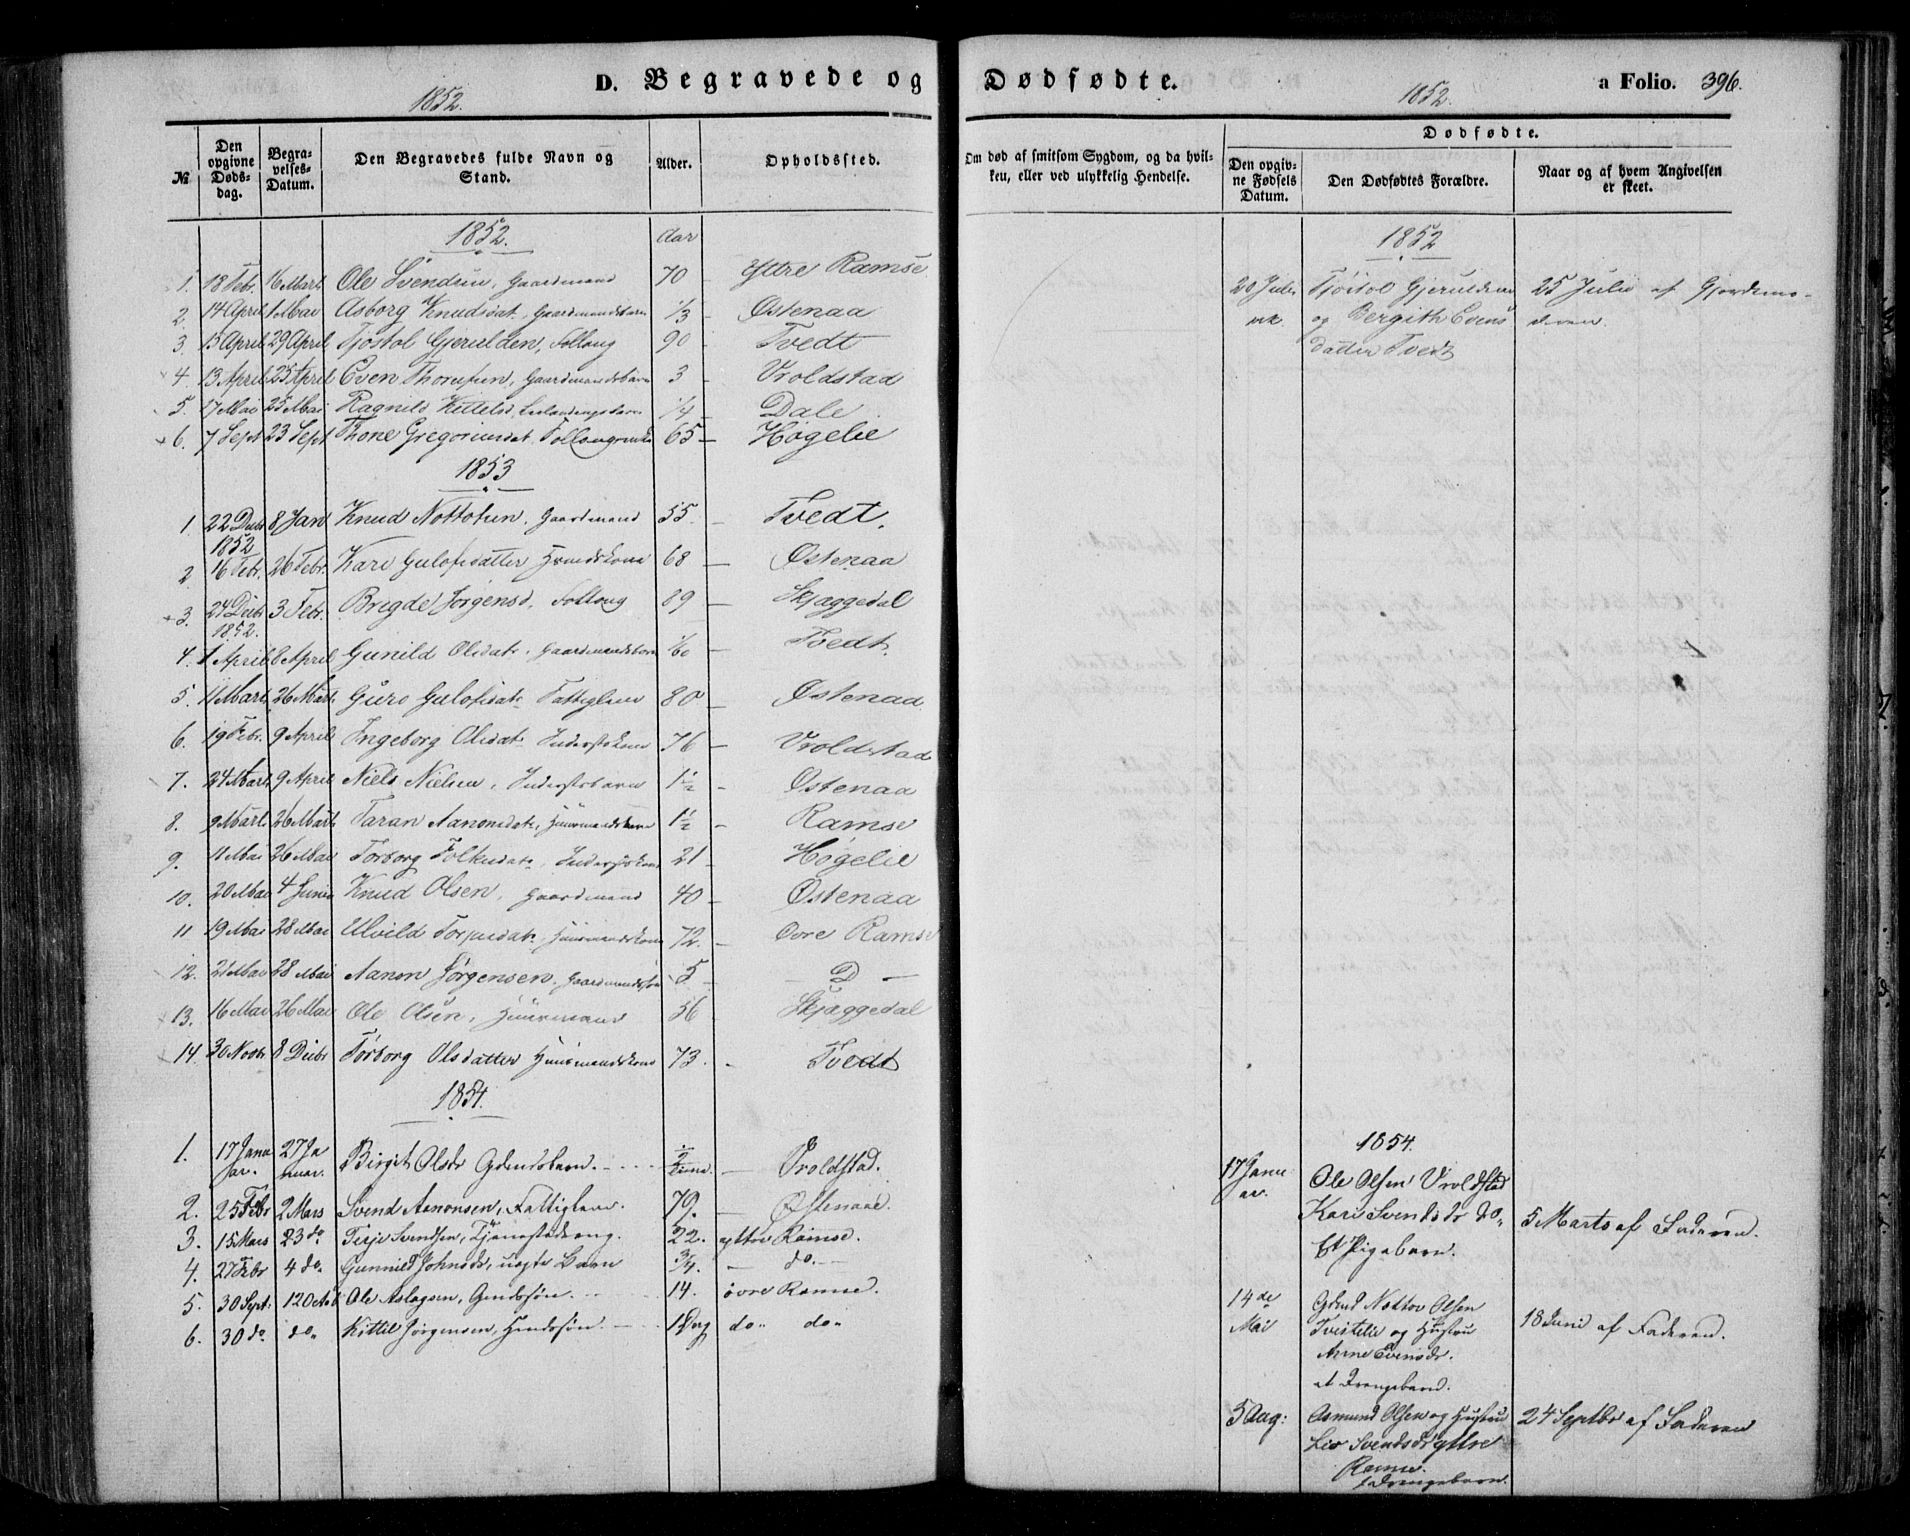 D. Begravede og Dødfødte. a Folio. 396.
1852. 1852.
№
Den opgivne Døds-dag.
Begra-velses-Datum.
Den Begravedes fulde Navn og Stand.
Alder.
Opholdssted.
Om død af smitsom Sygdom, og da hvil-
ken, eller ved ulykkelig Hendelse.
Dødfødte.
Den opgiv-
ne Fødsels
Datum.
Den Dødfødtes Forældre.
Naar og af hvem Angivelsen
er skeet.
1852. Aar
1. 18 Febr. 16 Mart. Ole Svendsen, Gaardmand 70 – Yttre Ramse
2. 14 April 1 Mai Asborg Knudsdat. Gaardmandsbarn 1/3 – Østenaa
3. 13 April 29 April Tjostol Gjerulsen, Follaug 90 – Tvedt
4. 13 April 25 April Even Thomsen, Gaardmandsbarn 3 – Vroldstad
5. 17 Mai 25 Mai Ragnild Kittelsd. 1/4 – Dale
6. 7 Sept 23 Sept Thone Gregoriusdat. 65 – Høgelie
1853
1. 22 Decbr 1852 8 Jan Knud Nottolsen. Gaardmand 55. – Tvedt.
2 16 Febr. 26 Febr. Kari Gulofsdatter 68 – Østenaa
3. 24 Decbr 1852. 3 Febr. Brigde Jørgensd. Follaug 89 – Skjaggedal
4. 1 April 8 April Gunild Olsdat. Gaardmandsbarn – Tvedt.
5. 11 Marts 26 Mart. Guro Gulofsdat. Fattiglem 80 – Østenaa
6. 19 Febr. 9 April Ingeborg Olsdat. Inderstekone 76 – Vroldstad
7. 24 Marts 9 April Niels Nielsen, Inderstebarn 1 1/2 – Østenaa
8. 9 Marts 26 Marts Taran Aanonsdat. Huusmandsbarn 1 1/2 – Ramse
9. 11 Mai 26 Mai Torborg Folkesdat. Inderstekone 21 – Høgelie
10. 20 Mai 4 Juni Knud Olsen, Gaardmand 40 – Østenaa
11 19 Mai 28 Mai Ulvild Torjusdat. Huusmandskone 72. – Øvre Ramse
12. 21 Mai 28 Mai Aanon Jørgensen. Gaardmandssøn 5 – – D –
13. 16 Mai 26 Mai Ole Olsen, Huusmand 56 Skjaggedal
14. 30 Novbr 8 Decbr Torborg Olsdatter Huusmandskone 73. – Tvedt
1854.
1. 17 Januar. 27 Januar. Birgit Olsdr Gdmdsbarn. 1/2 Time. – Vroldstad.
2. 25 Febr 2 Mars Svend Aanonsen, Fattiglem. 79. – Østenaae.
3. 15 Mars 23 do. Terje Svendsen, Tjenestedreng. 22. yttre Ramse.
4. 27 Febr 4 do. Gunnild Johnsdr, uægte Barn 3/4. – do. –
5. 30 Sept: Ole Aslagsen, Gmdssøn. 14. øvre Ramse.
6. 30 do. do. Kittil Jørgensen, Gmdssøn. 1 Dag do. do.
1852
20 Juli Tjøstol Gjeruldsen 25 Julii af Gjordemo-
og Bergith Evens deren.
datter Tvedt
1854.
17 Janu Ole Olsen Vroldstad
ar. Kari Svendsdr do. 5 Marts af Faderen.
Et Pigebarn.
14de Gdmd Nottov Olsen
Mai Tveitelie og Hustru 18 Juni af Faderen.
Anne Evensdr.
et Drengebarn.
5 Aug: Asmund Olsen og Hustru 24 Septbr af Faderen
Liv Svendsdr yttre
Ramse.
Drengebarn.